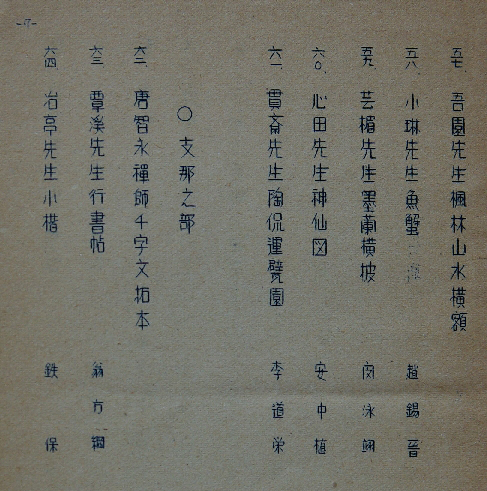 -17-
五七 吾園先生楓林山水横額
五八 小琳先生魚蟹 趙錫晉
五九 芸楣先生墨蘭横披 閔泳翊
六〇 心田先生神仙図 安中植
六一 貫斎先生陶侃運甓図 李道栄
〇支那之部
六二 唐智永禪師千字文拓本
六三 覃溪先生行書帖 翁方綱
六四 冶亭先生小楷 鉄保